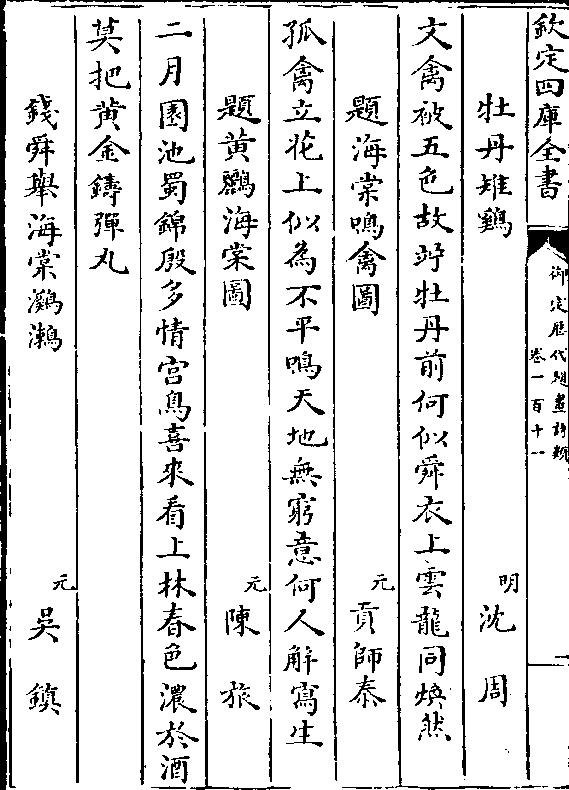 欽定四庫全書
御定歷代題畫詩類
卷一百十一
牡丹雉鷄
明 沈周
文禽被五色故竚牡丹前何似舜衣上雲龍同煥然
題海棠鳴禽圖
元 貢師泰
孤禽立花上似為不平鳴天地無窮意何人解寫生
題黃鸝海棠圖
元 陳旅
二月園池蜀錦殷多情宫鳥喜來看上林春色濃於酒
莫把黃金鑄彈丸
錢舜舉海棠鸂鶒
元 吳鎮